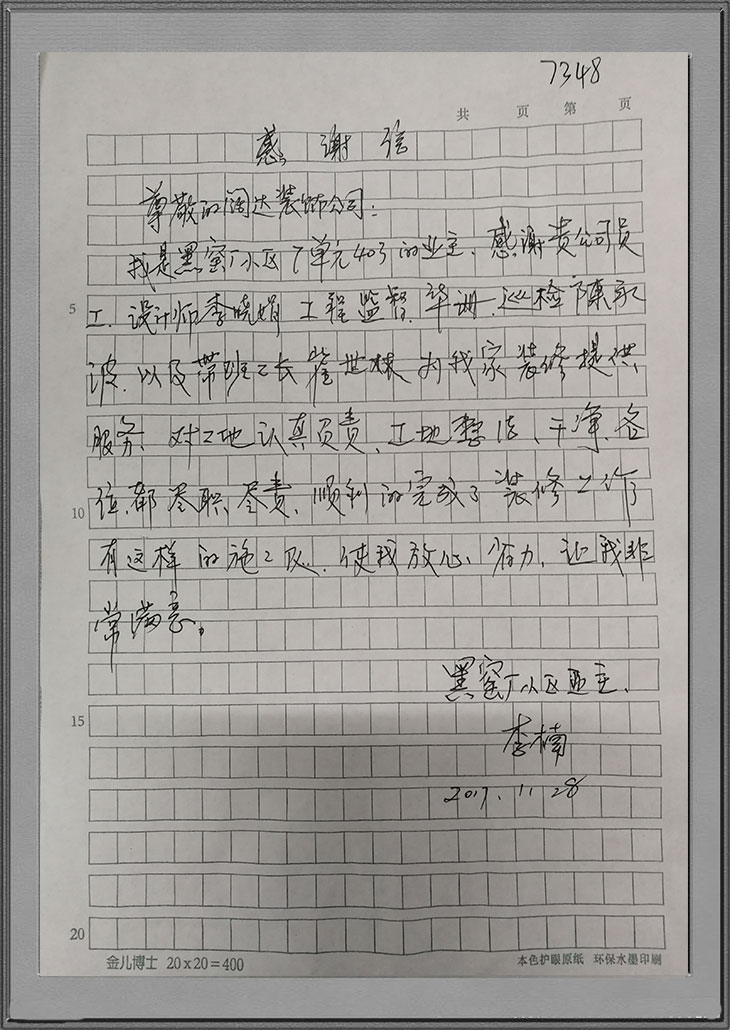 7348
共 页 第 页
感谢信
尊敬的阔达装饰公司:
我是黑窑厂小区7单元403的业主、感谢贵公司员
5
工、设计师李晓娟 工程监督 华洲、巡检陈永
波、以及带班工长崔世栋 为我家装修提供
服务、对工地认真负责、工地整洁、干净、各
10
位都尽职、尽责、顺利的完成了装修工作
有这样的施工队、使我放心、省力、让我非
常满意。
黑窑厂小区业主、
15
李楠
2017.11.28
20
金儿博士 20x20=400
本色护眼原纸 环保水墨印刷